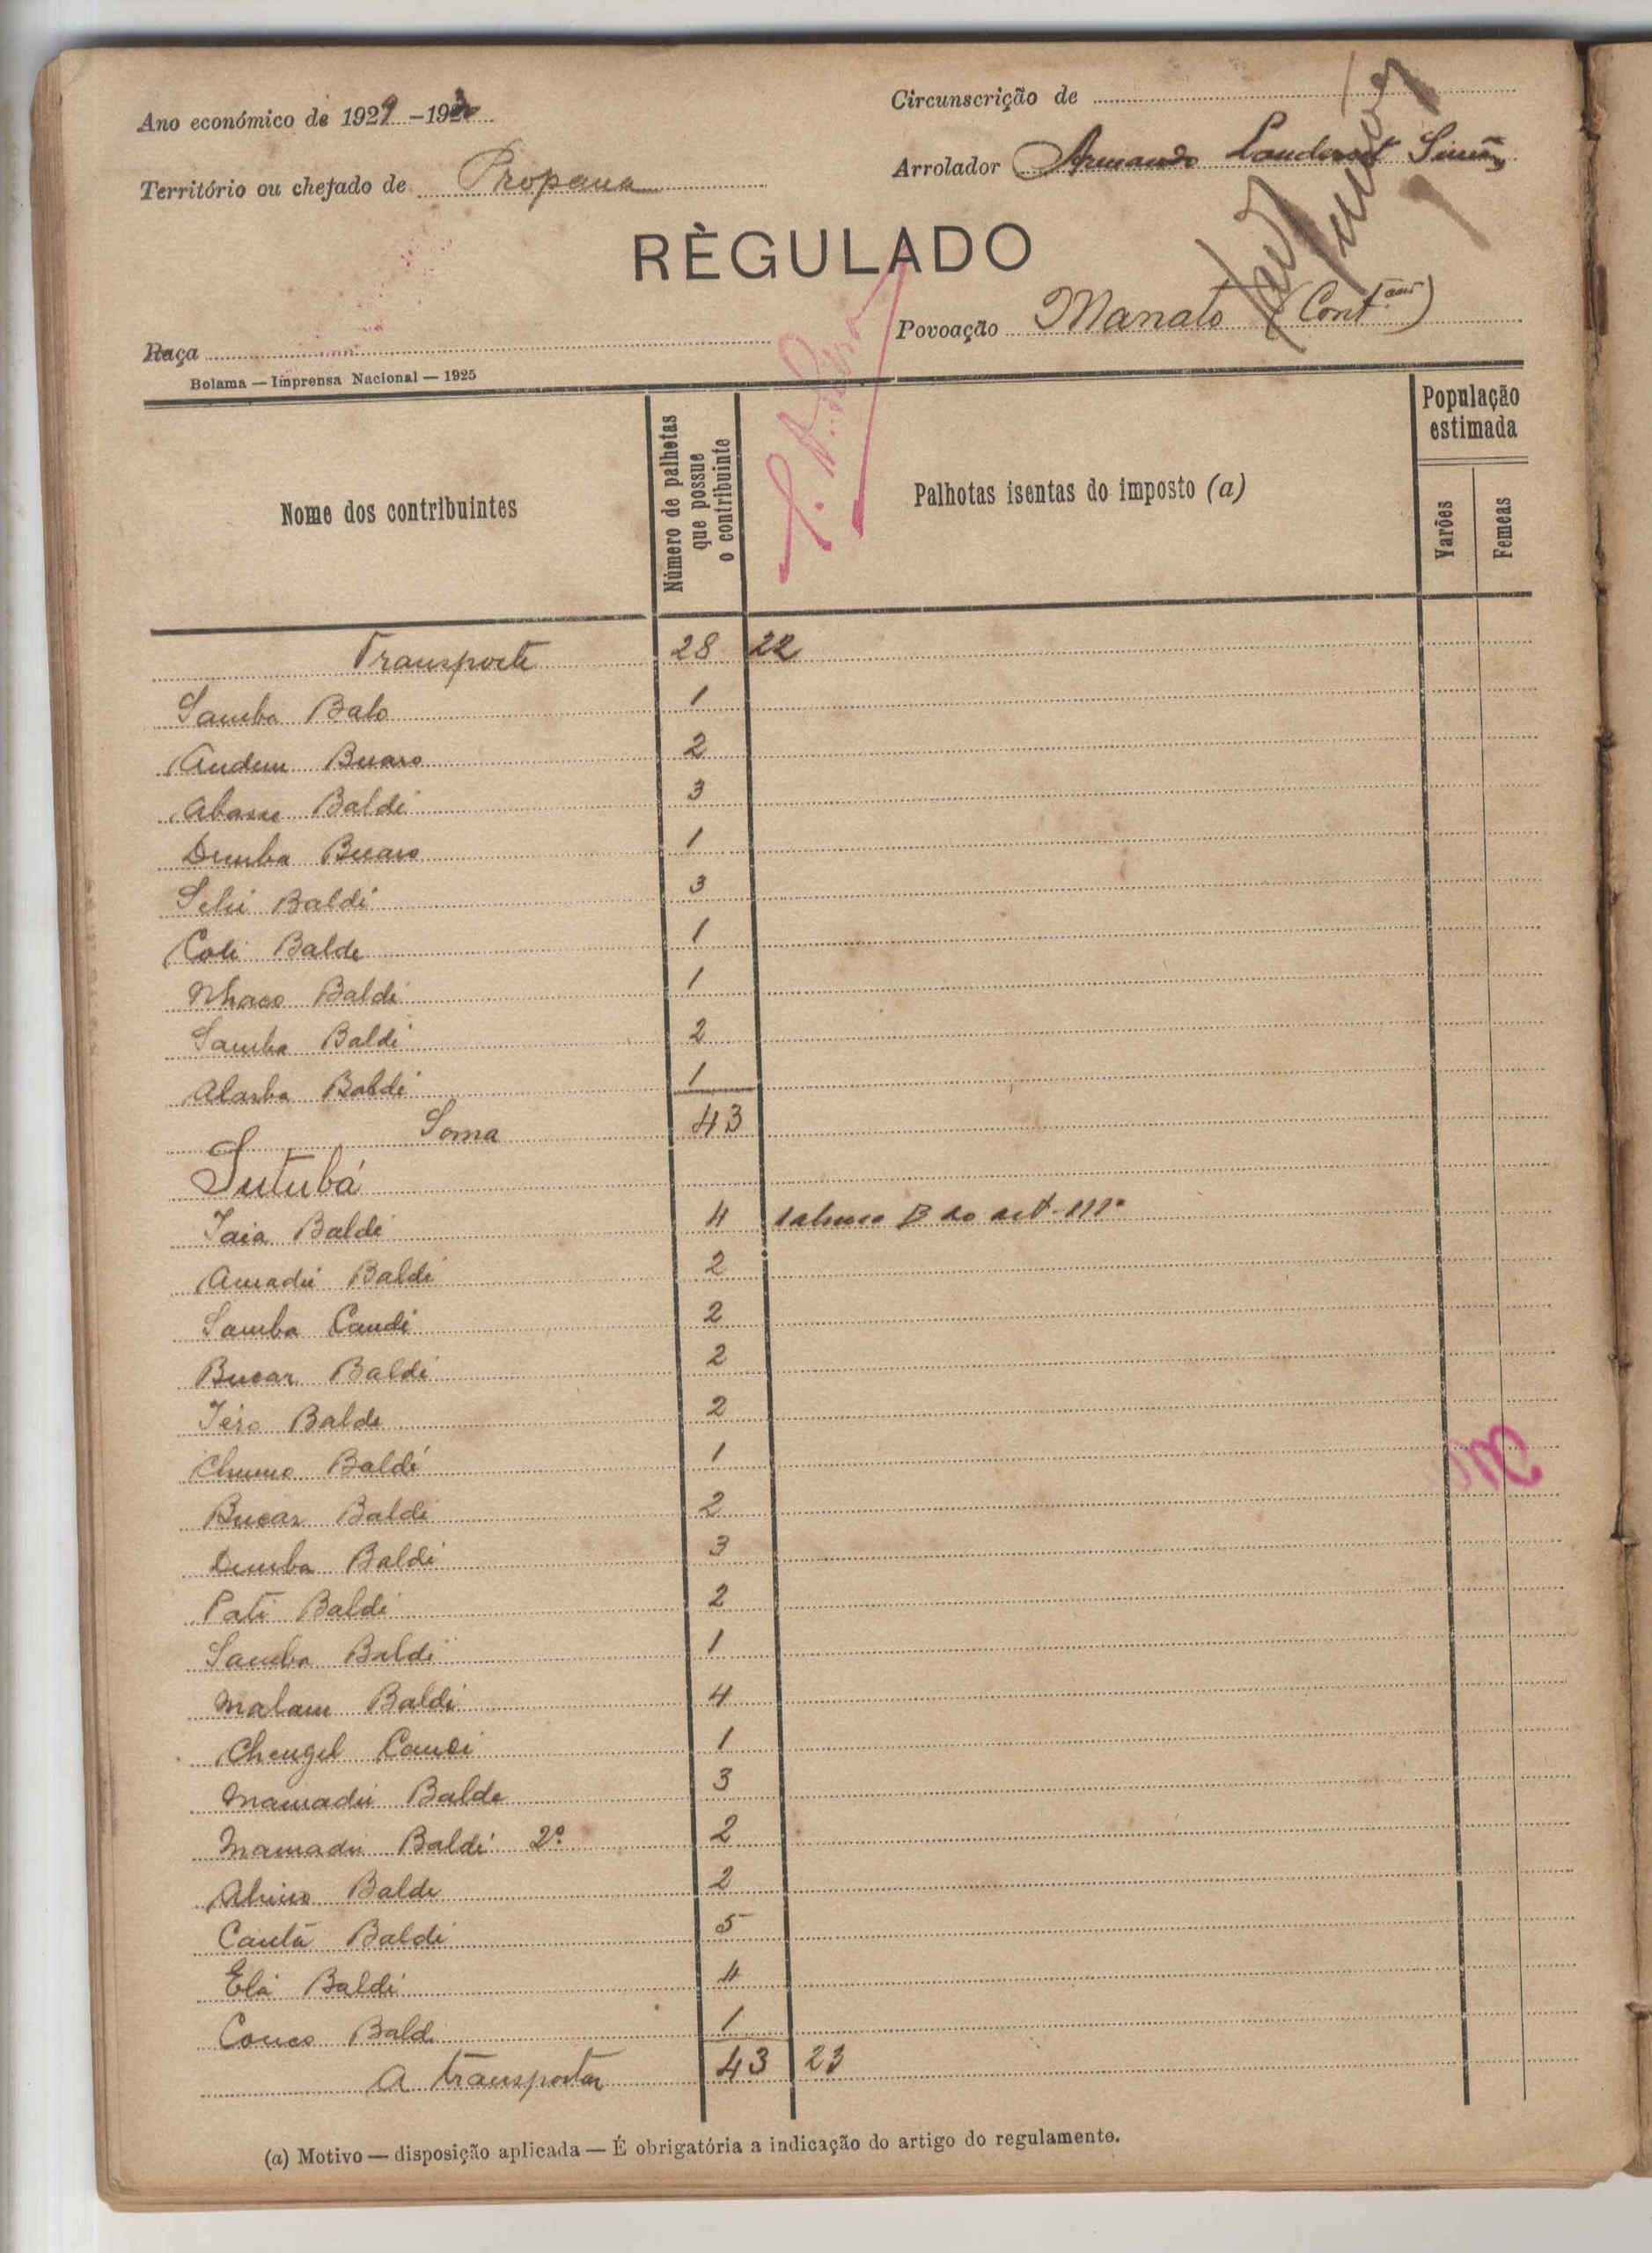 Ano económico de 1929-1930
Circunscrição de
Território ou chefado de Propana
Arrolador Armando Landerset Simões
RÈGULADO
Raça
Povoação Manato (Cont.ção)
Bolama — Imprensa Nacional — 1925
Nome dos contribuintes
Número de palhotas que possue o contribuinte
Palhotas isentas do imposto (a)
População estimada
Varões
Femeas
Transporte 28 22
Samba Balo 1
Andem Buaro 2
Abasse Baldé 3
Demba Buaro 1
Baldé 3
Coli Balde 1
Nhaco Baldé 1
Samba Baldé 2
Alarba Baldé 1
Soma 43
Sutubá
Iaia Baldé 4 B do art. 111º
Amadú Baldé 2
Samba Candé 2
Bucar Baldé 2
Iéro Balde 2
Baldé 1
Bucar Baldé 2
Demba Baldé 3
Pati Baldé 2
Samba Baldé 1
Malam Baldé 4
Chengel Candé 1
Mamadú Balde 3
Mamadu Baldé 2º 2
Balde 2
Cantá Baldé 5
Elá Baldé 4
Couco Balde 1
A transportar 43 23
(a) Motivo — disposição aplicada — É obrigatória a indicação do artigo do regulamento.